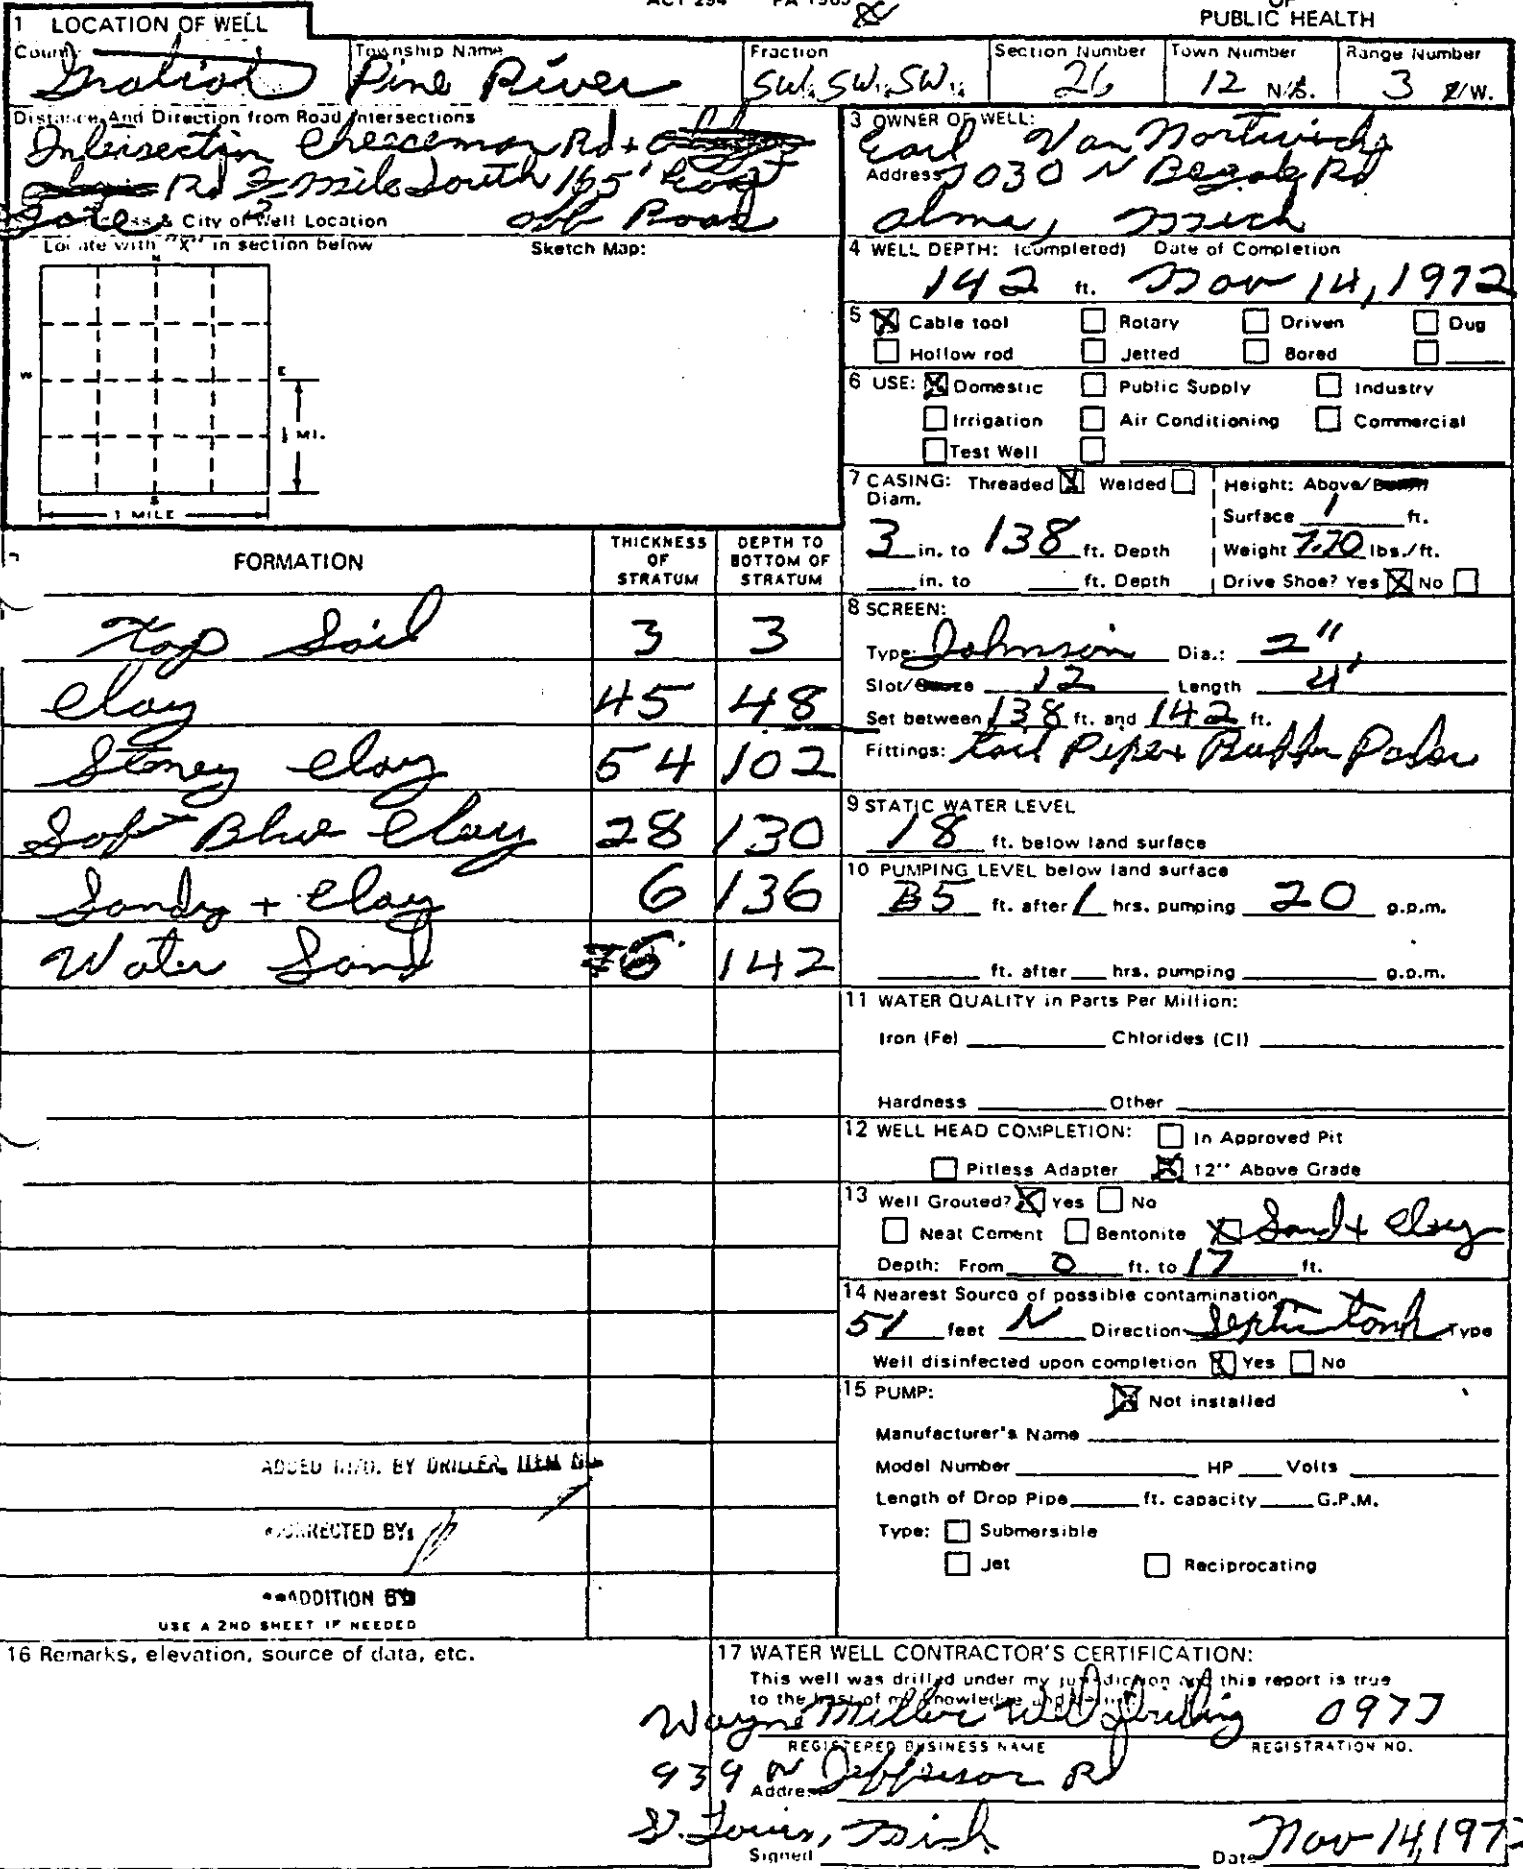 ACT 294 PA 1965
OF
PUBLIC HEALTH
1 LOCATION OF WELL
County Gratiot
Township Name Pine River
Fraction SW¼ SW¼ SW¼
Section Number 26
Town Number 12 N/S.
Range Number 3 E/W.
Distance And Direction from Road Intersections
Intersection Cheeseman Rd +
Rd 2 mile South 165' East
off Road
& City of Well Location
Locate with "X" in section below
Sketch Map:
N
W
E
S
MI.
1 MILE
3 OWNER OF WELL:
Earl Van Nortwick
Address 7030 N Begole Rd
Alma, Mich
4 WELL DEPTH: (completed) Date of Completion
142 ft. Nov 14, 1972
5 Cable tool Rotary Driven Dug
Hollow rod Jetted Bored
6 USE: Domestic Public Supply Industry
Irrigation Air Conditioning Commercial
Test Well
7 CASING: Threaded Welded
Diam.
3 in. to 138 ft. Depth
in. to ft. Depth
Height: Above/Below
Surface 1 ft.
Weight 7.70 lbs./ft.
Drive Shoe? Yes No
FORMATION
THICKNESS OF STRATUM
DEPTH TO BOTTOM OF STRATUM
Top Soil 3 3
Clay 45 48
Stoney Clay 54 102
Soft Blue Clay 28 130
Sandy + Clay 6 136
Water Sand 6 142
8 SCREEN:
Type: Johnson Dia.: 2"
Slot/Gauze 12 Length 4'
Set between 138 ft. and 142 ft.
Fittings: Tail Pipe +
9 STATIC WATER LEVEL
18 ft. below land surface
10 PUMPING LEVEL below land surface
35 ft. after 1 hrs. pumping 20 g.p.m.
ft. after hrs. pumping g.p.m.
11 WATER QUALITY in Parts Per Million:
Iron (Fe) Chlorides (Cl)
Hardness Other
12 WELL HEAD COMPLETION: In Approved Pit
Pitless Adapter 12" Above Grade
13 Well Grouted? Yes No
Neat Cement Bentonite Sand + Clay
Depth: From 0 ft. to 17 ft.
14 Nearest Source of possible contamination
51 feet N Direction Septic tank Type
Well disinfected upon completion Yes No
15 PUMP: Not installed
Manufacturer's Name
Model Number HP Volts
Length of Drop Pipe ft. capacity G.P.M.
Type: Submersible
Jet Reciprocating
ADDED INFO. BY DRILLER, ITEM NO.
*CORRECTED BY:
**ADDITION BY
USE A 2ND SHEET IF NEEDED
16 Remarks, elevation, source of data, etc.
17 WATER WELL CONTRACTOR'S CERTIFICATION:
This well was drilled under my jurisdiction and this report is true
to the best of my knowledge and belief.
Wayne Miller Well Drilling 0977
REGISTERED BUSINESS NAME REGISTRATION NO.
Address 939 N Jefferson Rd
St. Louis, Mich
Signed Date Nov 14, 197